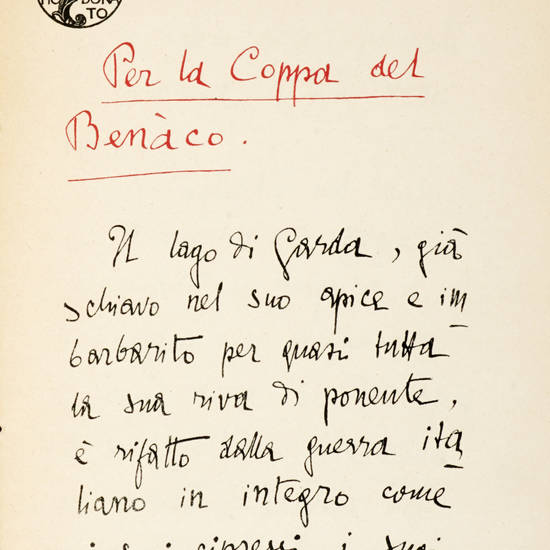 HO DONA
TO
Per la Coppa del
Benàco.
Il lago di Garda, già
schiavo nel suo apice e im
barbarito per quasi tutta
la sua riva di ponente,
è rifatto dalla guerra ita
liano in integro come
i suoi cipressi, i suoi